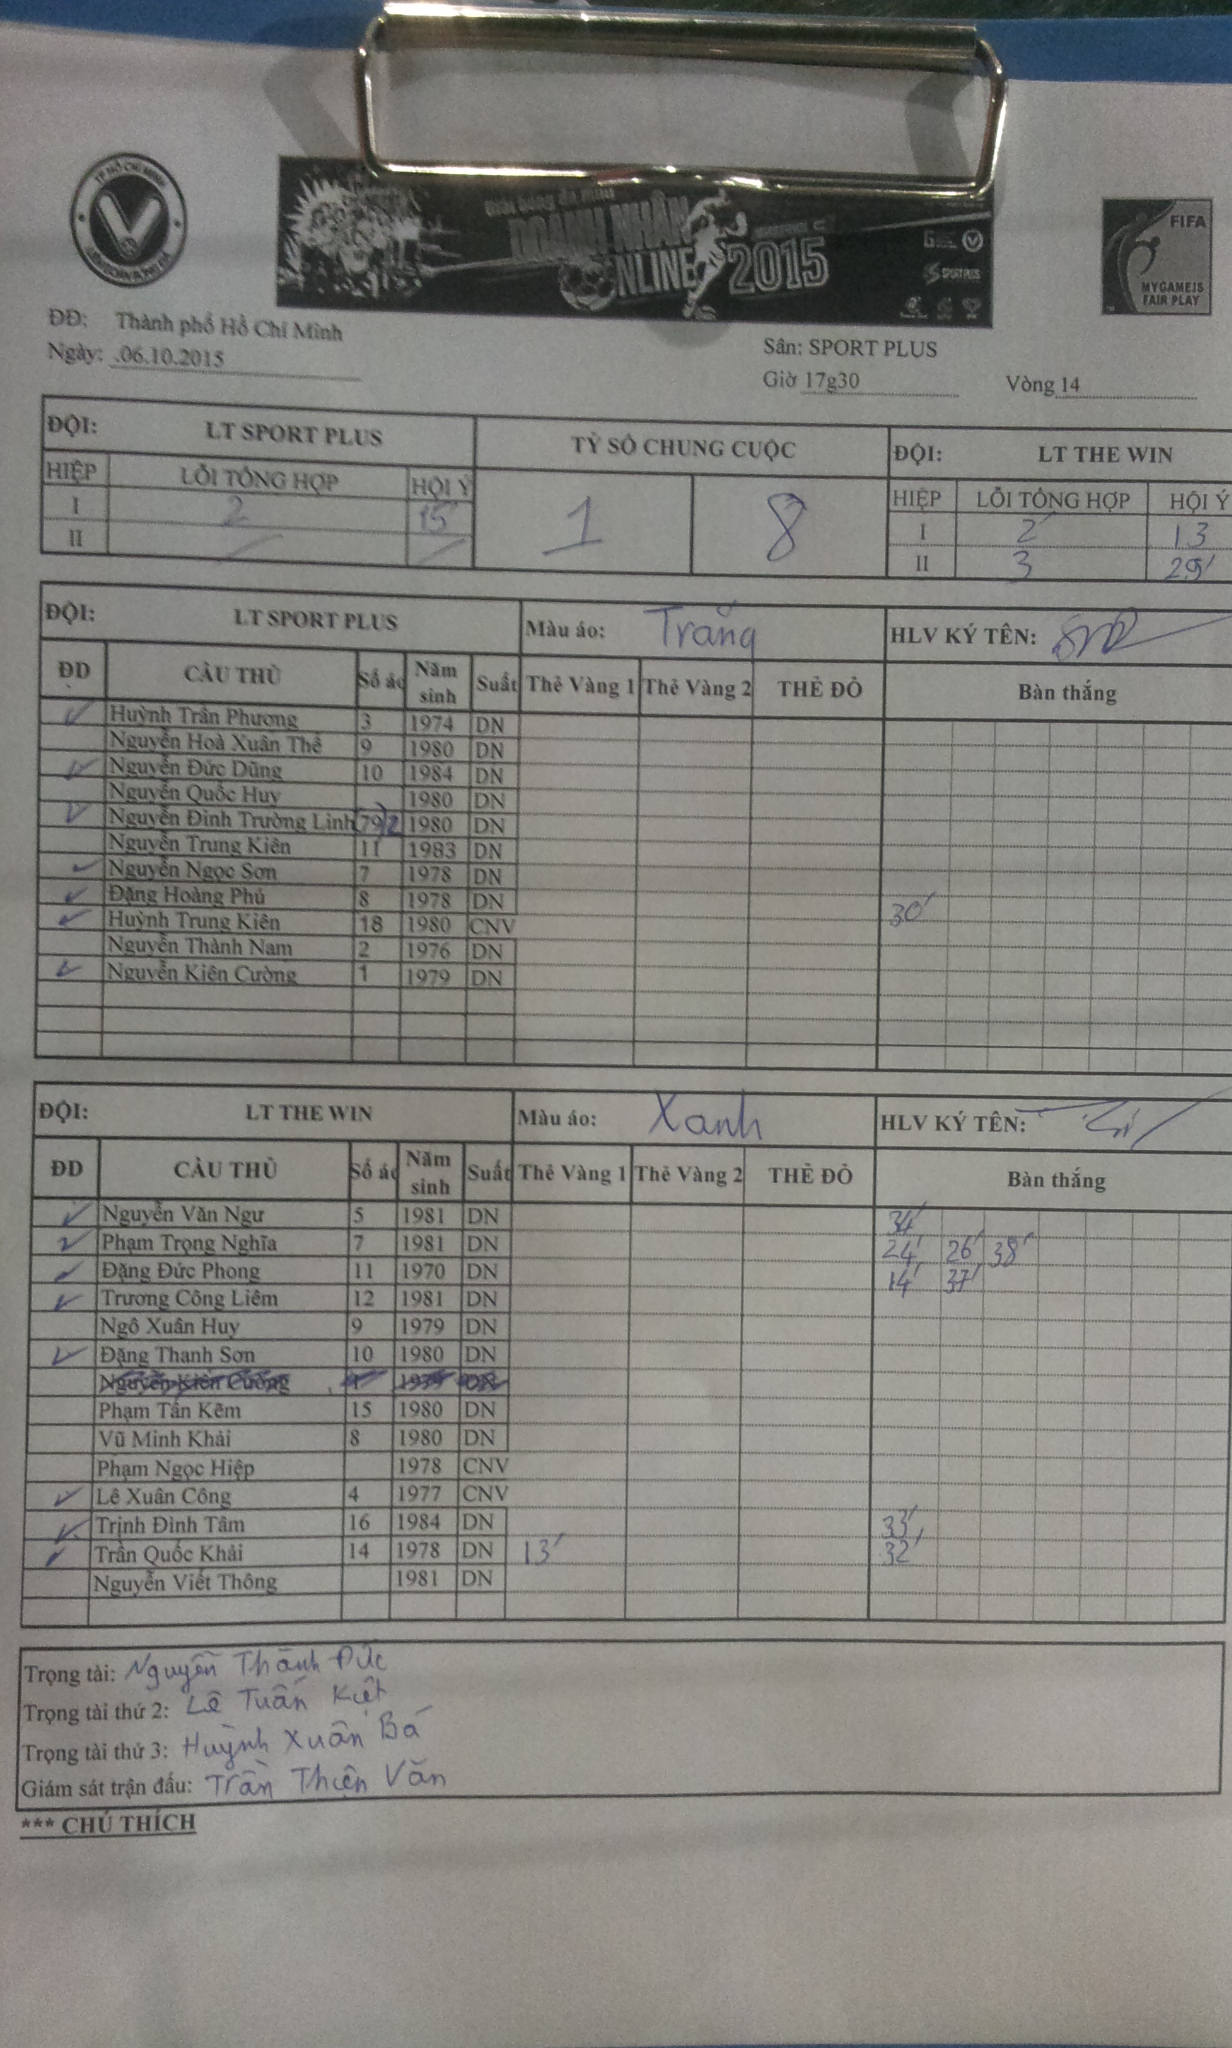 TP.HỒ CHÍ MINH
DOANH NHÂN
ONLINE 2015
SPORTPLUS
FIFA
MYGAMEIS
FAIR PLAY
ĐĐ: Thành phố Hồ Chí Minh
Ngày: .06.10.2015
Sân: SPORT PLUS
Giờ 17g30 Vòng 14
ĐỘI: LT SPORT PLUS TỶ SỐ CHUNG CUỘC ĐỘI: LT THE WIN
HIỆP LỖI TỔNG HỢP HỘI Ý HIỆP LỖI TỔNG HỢP HỘI Ý
I 2 15' 1 8 I 2 13
II II 3 29'
ĐỘI: LT SPORT PLUS Màu áo: Trắng HLV KÝ TÊN:
ĐD CẦU THỦ Số áo Năm sinh Suất Thẻ Vàng 1 Thẻ Vàng 2 THẺ ĐỎ Bàn thắng
Huỳnh Trần Phương 3 1974 DN
Nguyễn Hoà Xuân Thế 9 1980 DN
Nguyễn Đức Dũng 10 1984 DN
Nguyễn Quốc Huy 1980 DN
Nguyễn Đình Trường Linh (79)2 1980 DN
Nguyễn Trung Kiên 11 1983 DN
Nguyễn Ngọc Sơn 7 1978 DN
Đặng Hoàng Phủ 8 1978 DN
Huỳnh Trung Kiên 18 1980 CNV 30'
Nguyễn Thành Nam 2 1976 DN
Nguyễn Kiên Cường 1 1979 DN
ĐỘI: LT THE WIN Màu áo: Xanh HLV KÝ TÊN:
ĐD CẦU THỦ Số áo Năm sinh Suất Thẻ Vàng 1 Thẻ Vàng 2 THẺ ĐỎ Bàn thắng
Nguyễn Văn Ngư 5 1981 DN 34'
Phạm Trọng Nghĩa 7 1981 DN 24' 26' 38'
Đặng Đức Phong 11 1970 DN 14' 37'
Trương Công Liêm 12 1981 DN
Ngô Xuân Huy 9 1979 DN
Đặng Thanh Sơn 10 1980 DN
Nguyễn Kiên Cường 1 1979 DN
Phạm Tấn Kẽm 15 1980 DN
Vũ Minh Khải 8 1980 DN
Phạm Ngọc Hiệp 1978 CNV
Lê Xuân Công 4 1977 CNV
Trịnh Đình Tâm 16 1984 DN 33'
Trần Quốc Khải 14 1978 DN 13' 32'
Nguyễn Viết Thông 1981 DN
Trọng tài: Nguyễn Thành Đức
Trọng tài thứ 2: Lê Tuấn Kiệt
Trọng tài thứ 3: Huỳnh Xuân Bá
Giám sát trận đấu: Trần Thiện Văn
*** CHÚ THÍCH